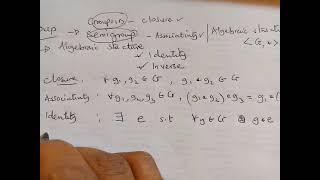 Groupoid - closure ✓
Semigroup - Associativity ✓ | Algebraic
→ Algebraic structure < G, * >
✓ Identity
✓ Inverse
closure: ∀ g₁, g₂ ∈ G,
Associativity: ∀ g₁, g₂, g₃ ∈ G, (g₁ • g₂) • g₃ = g₁ •
Identity: ∃ e s.t ∀ g ∈ G g • e